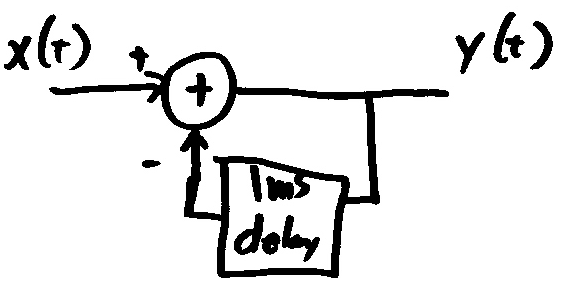 X(t)
+
+
Y(t)
-
1ms
delay